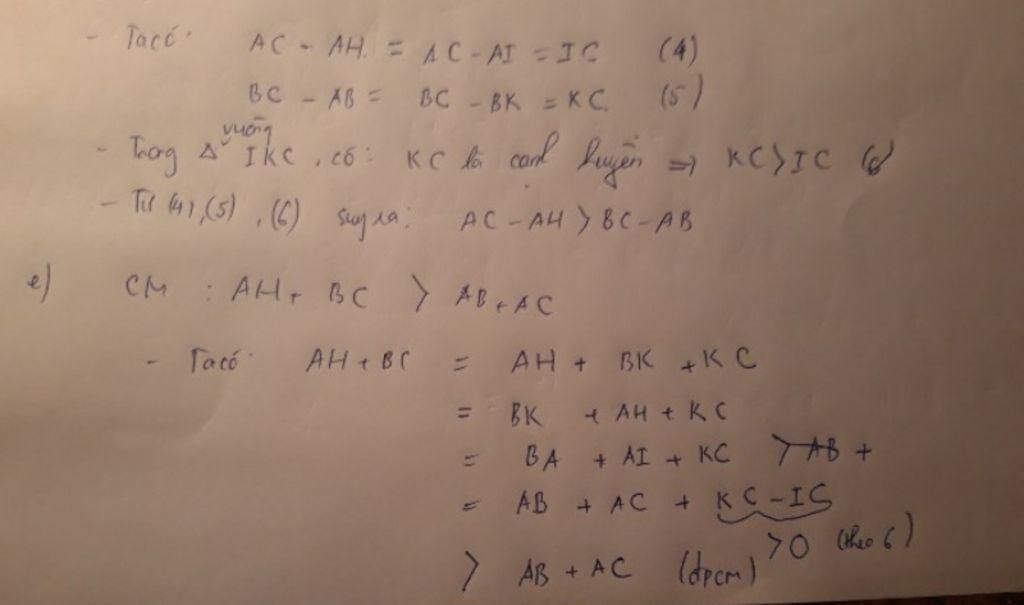 - Ta có: AC - AH = AC - AI = IC (4)
BC - AB = BC - BK = KC (5)
vuông
- Trong Δ IKC, có: KC là cạnh huyền => KC > IC (6)
- Từ (4), (5), (6) suy ra: AC - AH > BC - AB
e) CM : AH + BC > AB + AC
- Ta có: AH + BC = AH + BK + KC
= BK + AH + KC
= BA + AI + KC > AB +
= AB + AC + KC - IC
>0 (theo 6)
> AB + AC (đpcm)